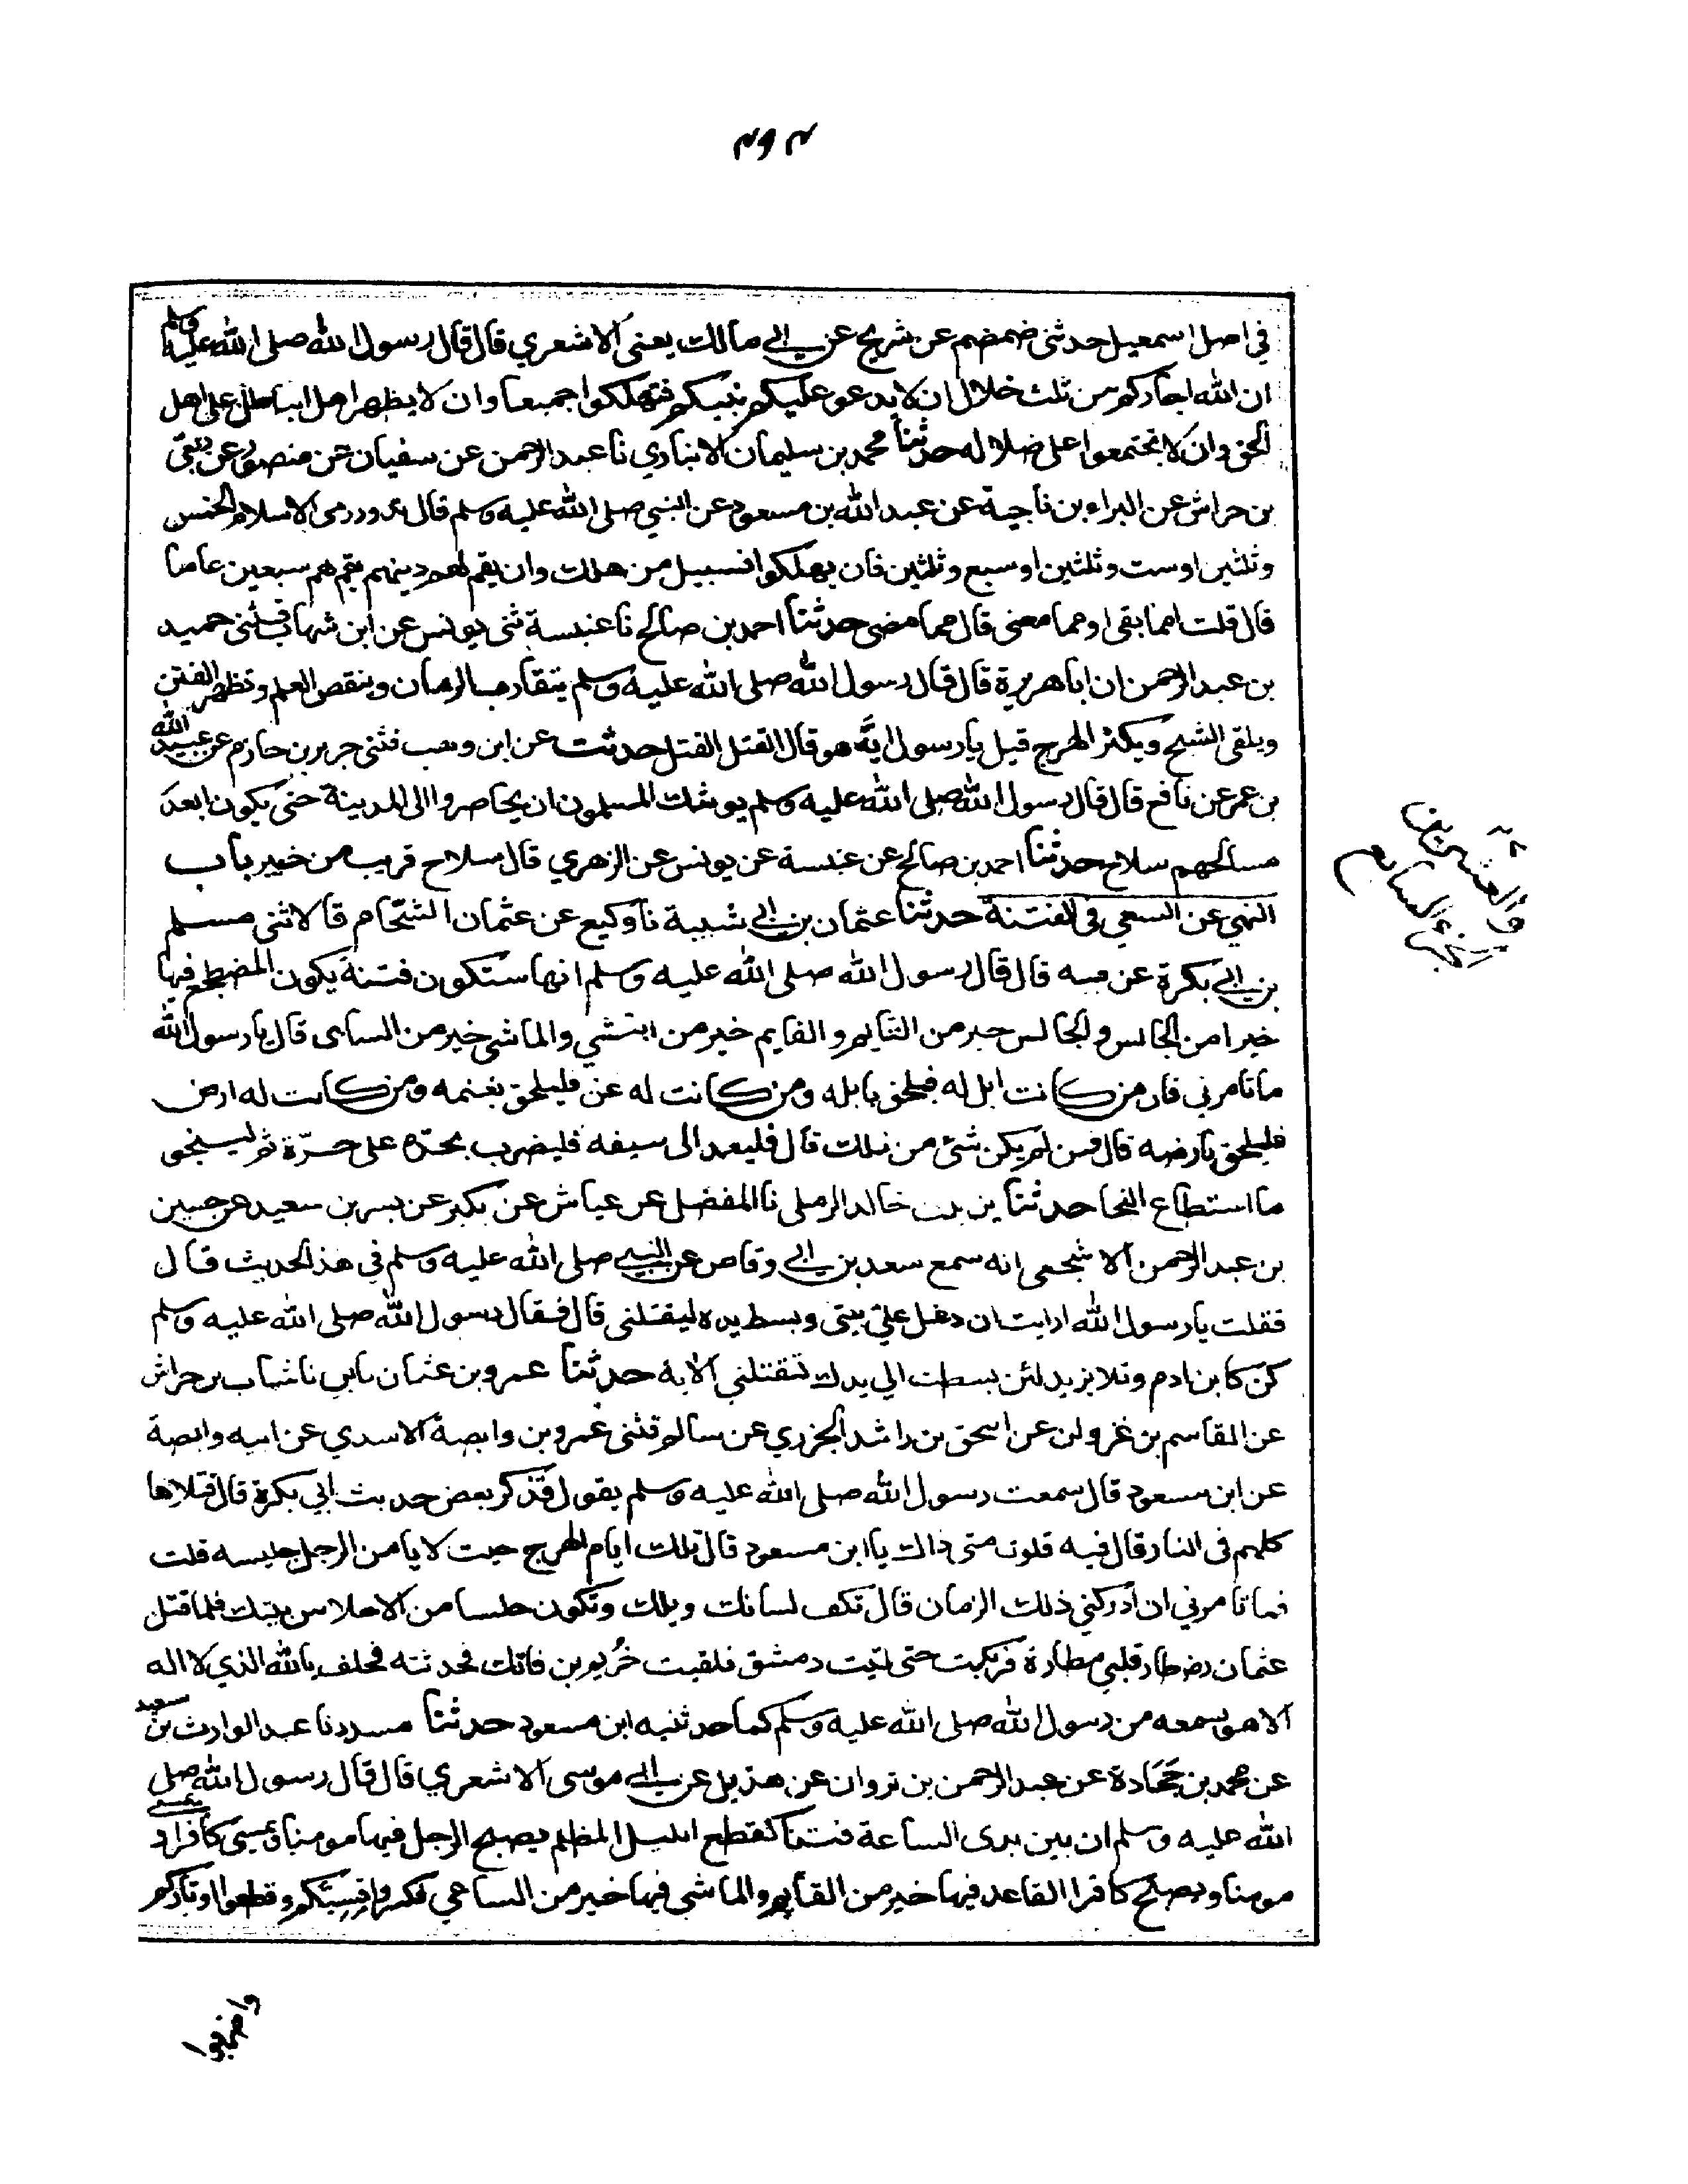 في اصل اسمعيل حدثنى ضمضم عن شريح عن ابي مالك يعنى الاشعري قال قال رسول الله صلى الله عليه وسلم
ان الله اجاركم من ثلث خلال ان لا يدعو عليكم نبيكم فتهلكوا جميعا وان لا يظهر اهل الباطل على اهل
الحق وان لا تجتمعوا على ضلاله حدثنا محمد بن سليمان الانباري نا عبد الرحمن عن سفيان عن منصور عن ربعي
بن حراش عن البراء بن ناجية عن عبد الله بن مسعود عن النبي صلى الله عليه وسلم قال تدور رحى الاسلام لخمس
وثلثين اوست وثلثين او سبع وثلثين فان يهلكوا فسبيل من هلك وان يقم لهم دينهم يقم لهم سبعين عاما
قال قلت امما بقى او مما مضى قال مما مضى حدثنا احمد بن صالح نا عنبسة ثنى يونس عن ابن شهاب قثنى حميد
بن عبد الرحمن ان ابا هريرة قال قال رسول الله صلى الله عليه وسلم يتقارب الزمان وينقص العلم وتظهر الفتن
ويلقى الشح ويكثر الهرج قيل يا رسول ايه هو قال القتل القتل حدثت عن ابن وهب قثنى جرير بن حازم عن عبيد الله
بن عمر عن نافع قال قال رسول الله صلى الله عليه وسلم يوشك المسلمون ان يحاصروا الى المدينة حتى يكون ابعد
مسالحهم سلاح حدثنا احمد بن صالح عن عنبسة عن يونس عن الزهري قال سلاح قريب من خيبر باب
النهي عن السعي في الفتنة حدثنا عثمان بن ابي شيبة نا وكيع عن عثمان الشحام قا لا ثنى مسلم
بن ابي بكرة عن قال قال رسول الله صلى الله عليه وسلم انها ستكون فتنة يكون المضطجع فيها
خيرا من الجالس والجالس خير من القايم والقايم خير من الماشي والماشي خير من الساعى قال يا رسول الله
ما تامرني قال من كانت له ابل فليلحق بابله ومن كانت له غنم فليلحق بغنمه ومن كانت له ارض
فليلحق بارضه قال فمن لم يكن شئ من ذلك قال فليعمد الى سيفه فليضرب بحده على حرة ثم لينجو
ما استطاع النجا حدثنا يزيد بن خالد الرملي نا المفضل عن عياش عن بكير عن بسر بن سعيد عن حسين
بن عبد الرحمن الاشجعي انه سمع سعد بن ابي وقاص عن النبي صلى الله عليه وسلم في هذا الحديث قال
فقلت يا رسول الله ارايت ان دخل علي بيتي وبسط يده ليقتلنى قال فقال رسول الله صلى الله عليه وسلم
كن كابن ادم وتلا يزيد لئن بسطت الي يدك لتقتلني الاية حدثنا عمرو بن عثمان نا ابي نا شهاب بن خراش
عن القاسم بن غزوان عن اسحق بن راشد الجزري عن سالم قثنى عمرو بن وابصة الاسدي عن ابيه وابصة
عن ابن مسعود قال سمعت رسول الله صلى الله عليه وسلم يقول فذكر بعض حديث ابي بكرة قال قتلاها
كلهم في النار قال فيه قلت متى ذاك يا ابن مسعود قال تلك ايام الهرج حيث لا يامن الرجل جليسه قلت
فما تامرني ان ادركني ذلك الزمان قال تكف لسانك ويدك وتكون حلسا من الاحلاس بيتك فلما قتل
عثمان رض طار قلبي مطاره فركبت حتى اتيت دمشق فلقيت خريم بن فاتك فحدثته فحلف بالله الذي لا اله
الا هو لسمعه من رسول الله صلى الله عليه وسلم كما حدثنيه ابن مسعود حدثنا مسدد نا عبد الوارث بن سعيد
عن محمد بن جحادة عن عبد الرحمن بن ثروان عن هذيل عن ابي موسى الاشعري قال قال رسول الله صلى
الله عليه وسلم ان بين يدى الساعة فتنا كقطع الليل المظلم يصبح الرجل فيها مومنا ويمسى كافرا و يمسى
مومنا ويصبح كافرا القاعد فيها خير من القايم والماشي فيها خير من الساعي فكسروا قسيكم وقطعوا اوتاركم
واضربوا
الجزء السابع
والعشرين